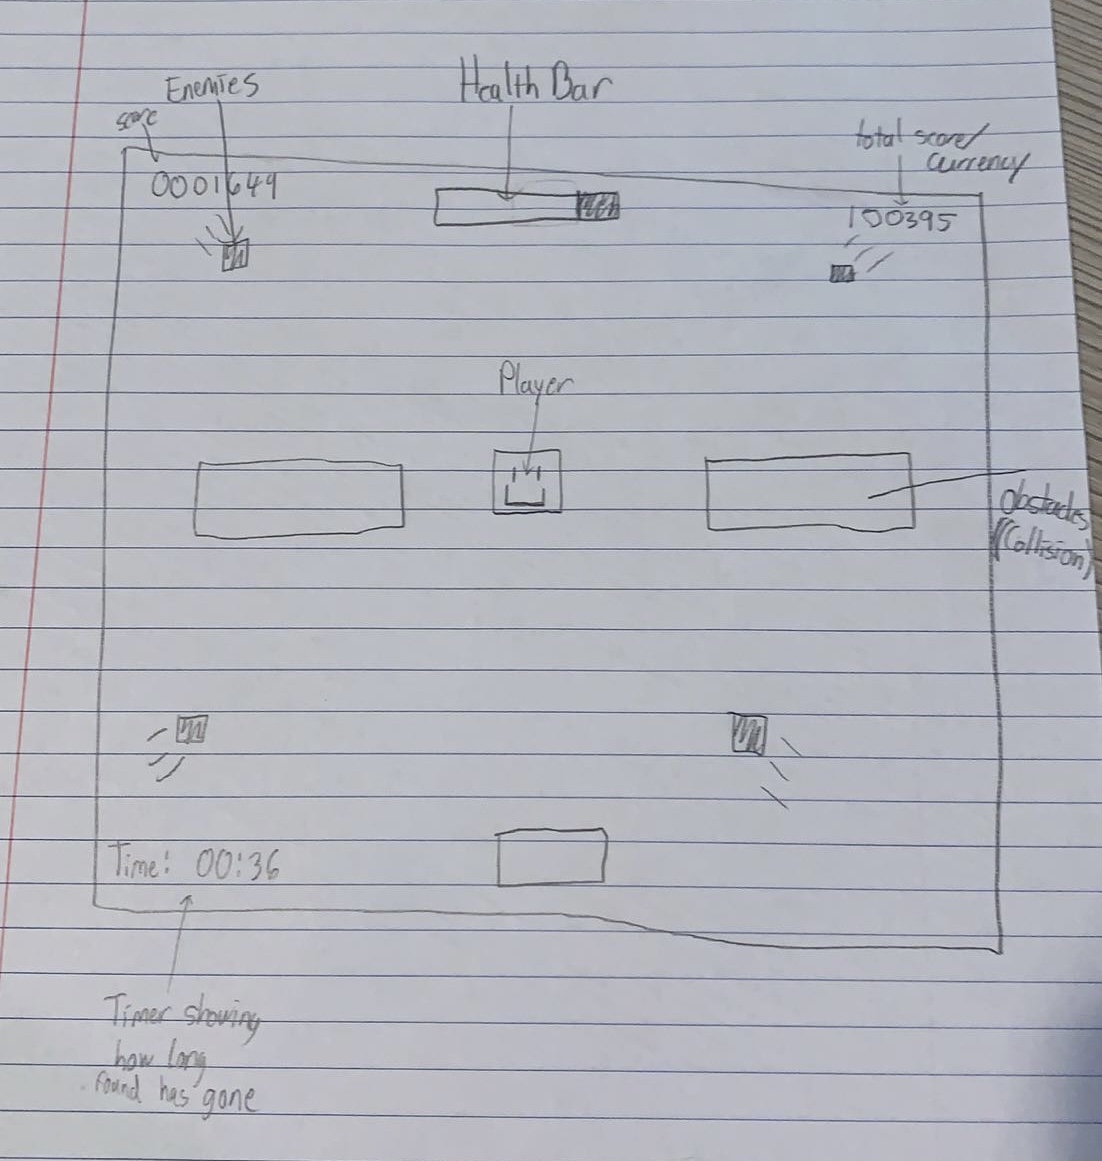 Enemies
Health Bar
score
total score/
currency
0001649
100395
Player
Obstacles
(Collision)
Time: 00:36
Timer showing
how long
round has gone